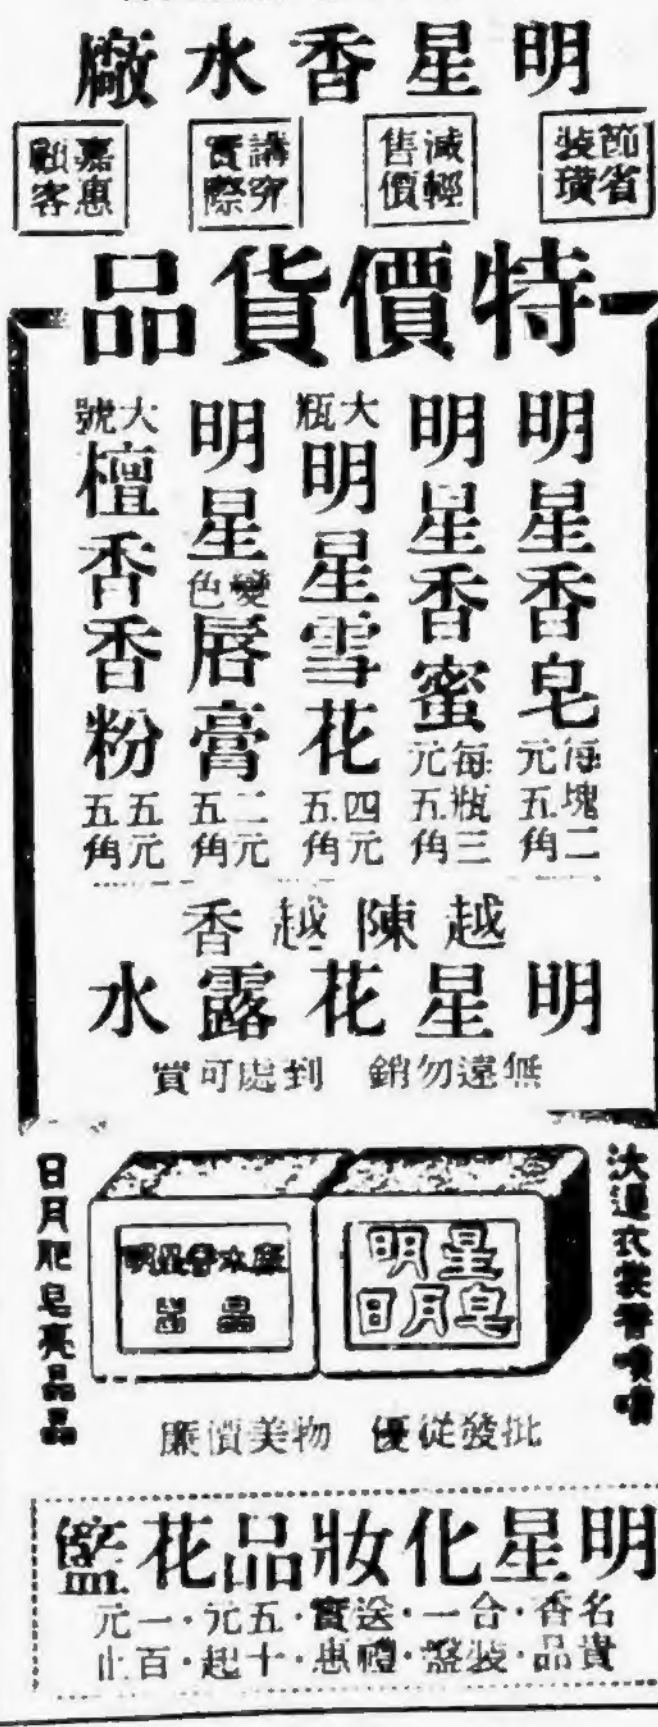 明星香水廠
節省裝璜
減輕售價
講究實際
嘉惠顧客
特價貨品
明星香皂 每塊二元五角
明星香蜜 每瓶三元五角
大瓶明星雪花 四元五角
明星變色唇膏 二元五角
大號檀香香粉 五元五角
越陳越香
明星花露水
無遠勿銷 到處可買
汏過衣裳香噴噴
明星日月皂
明星香水廠出品
日月肥皂亮晶晶
批發從優 物美價廉
明星化妝品花籃
名貴香品・合裝一盤・送禮實惠・五十元起・一百元止